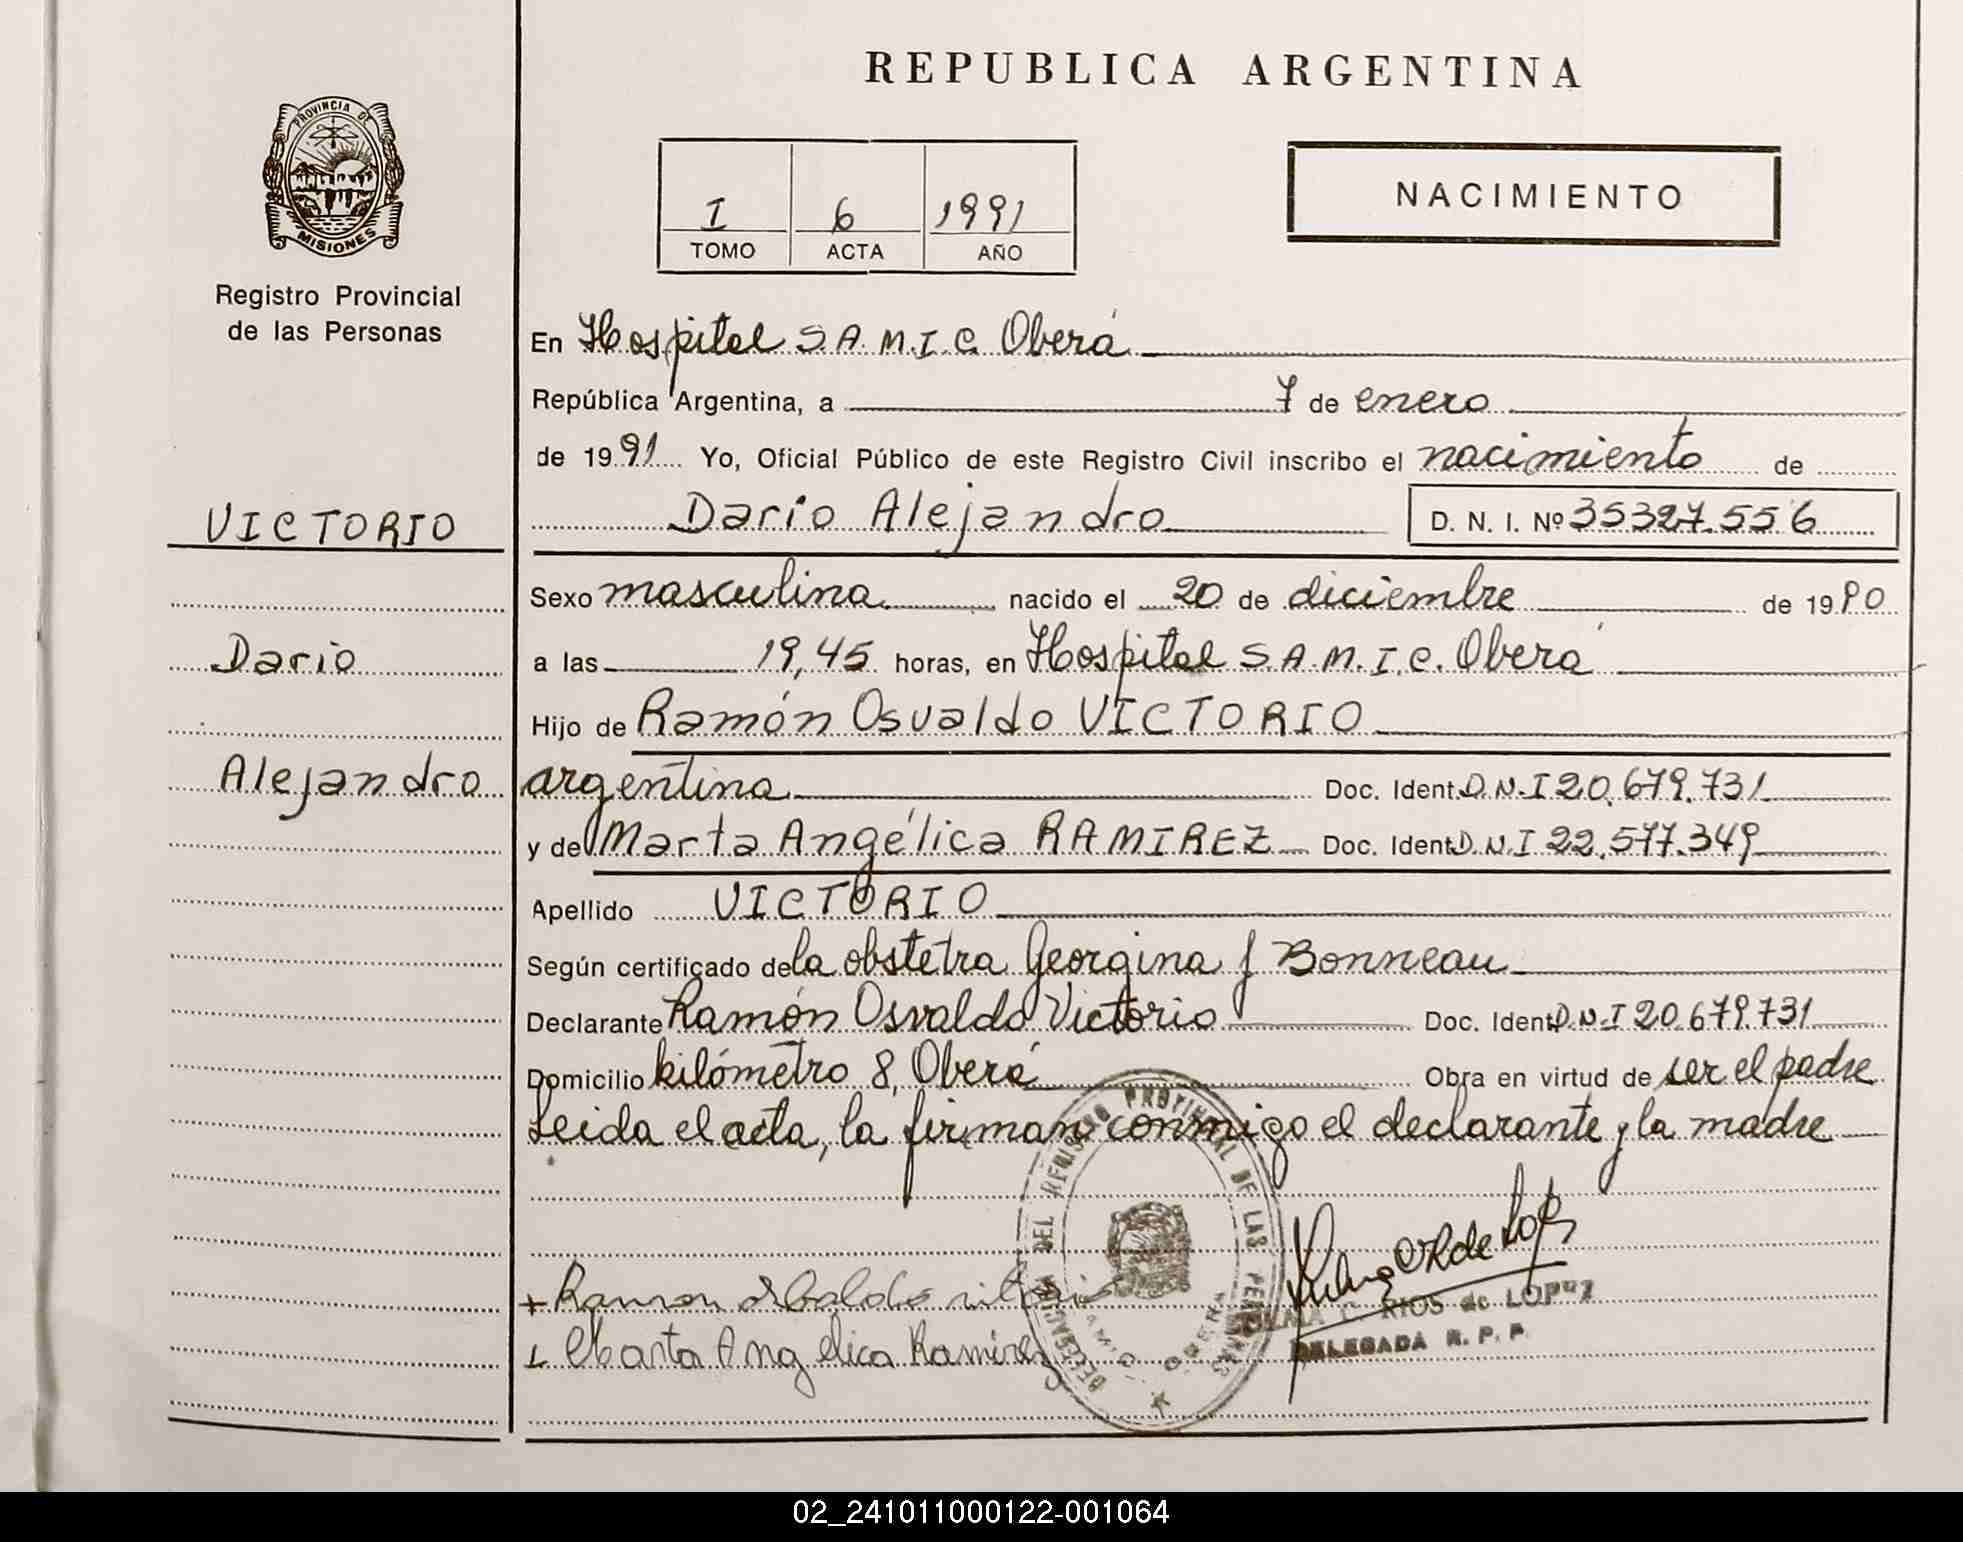 REPUBLICA ARGENTINA
PROVINCIA DE
MISIONES
Registro Provincial
de las Personas
I 6 1991
TOMO ACTA AÑO
NACIMIENTO
En Hospital S.A.M.I.C. Oberá
República Argentina, a 7 de enero
de 1991 Yo, Oficial Público de este Registro Civil inscribo el nacimiento de
VICTORIO
Dario Alejandro D. N. I. Nº 35327.556
Sexo masculina nacido el 20 de diciembre de 1990
Dario
a las 19,45 horas, en Hospital S.A.M.I.C. Oberá
Hijo de Ramón Osvaldo VICTORIO
Alejandro
argentina Doc. Ident. D.N.I 20.679.731
y de Marta Angélica RAMIREZ Doc. Ident. D.N.I 22.577.349
Apellido VICTORIO
Según certificado de la obstetra Georgina J Bonneau
Declarante Ramón Osvaldo Victorio Doc. Ident. D.N.I 20.679.731
Domicilio kilómetro 8, Oberá Obra en virtud de ser el padre
Leida el acta, la firman conmigo el declarante y la madre
DELEGACION DEL REGISTRO PROVINCIAL DE LAS PERSONAS
OBERA
Ramon
Marta Angelica Ramirez
C. RIOS de LOPEZ
DELEGADA R. P. P.
02_241011000122-001064